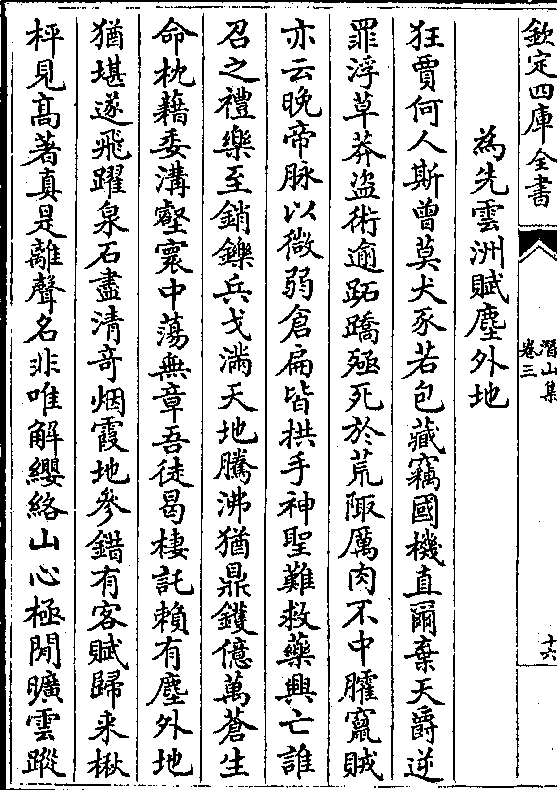 欽定四庫全書
潛山集
卷三
十六
為先雲洲賦塵外地
狂賈何人斯曾莫犬豕若包藏竊國機直爾棄天爵逆
罪浮草莽盜術逾跖蹻殛死於荒陬厲肉不中臛竄賊
亦云晚帝脉以微弱倉扁皆拱手神聖難救藥興亡誰
召之禮樂至銷鑠兵戈滿天地騰沸猶鼎鑊億萬蒼生
命枕藉委溝壑寰中蕩無章吾徒曷棲託賴有塵外地
猶堪遂飛躍泉石盡清奇烟霞地參錯有客賦歸来楸
枰見髙著真是離聲名非唯解纓絡山心極閒曠雲蹤